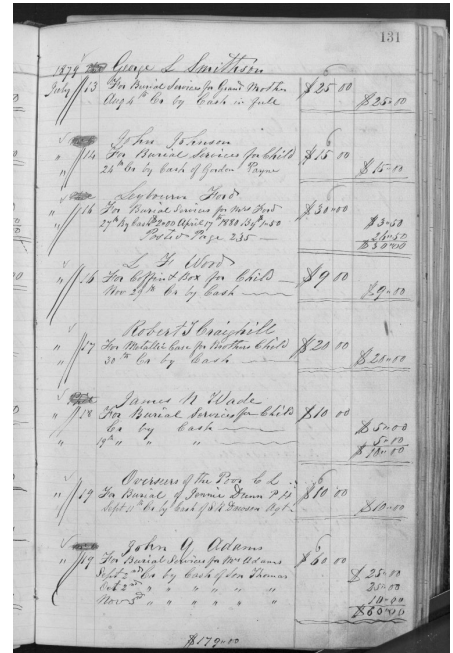 131
1879 George L Smithson
July 13 For Burial Services for Grand Mother $25 00
Aug 4th Cr by Cash in full $25 00
John Johnson
" 14 For Burial Services for Child $15 00
24th Cr by Cash of Gordon Payne $15 00
Seybourn Ford
" 16 For Burial Services for Ford $30 00
27th By Cash 2 00 April 17th 1880 By 1 50 $3 50
Posted Page 235 26 50
$30 00
L F Word
" 16 For Coffin & Box for Child $9 00
Nov 29th Cr by Cash $9 00
Robert T Craighill
" 17 For Metallic Case for Brothers Child $20 00
30th Cr by Cash $20 00
James N Wade
" 18 For Burial Services for Child $10 00
" Cr by Cash $5 00
" 19th " " " 5 00
$10 00
Overseers of the Poor C L
" 19 For Burial of Jennie Drenn $10 00
Sept 11th Cr by Cash of Dawson Agt $10 00
John Q Adams
" 19 For Burial Services for Mr Adams $60 00
Sept 2nd Cr by Cash of Son Thomas $25 00
Oct 2nd " " " " " " 25 00
Nov 5th " " " " " " 10 00
$60 00
$179 00